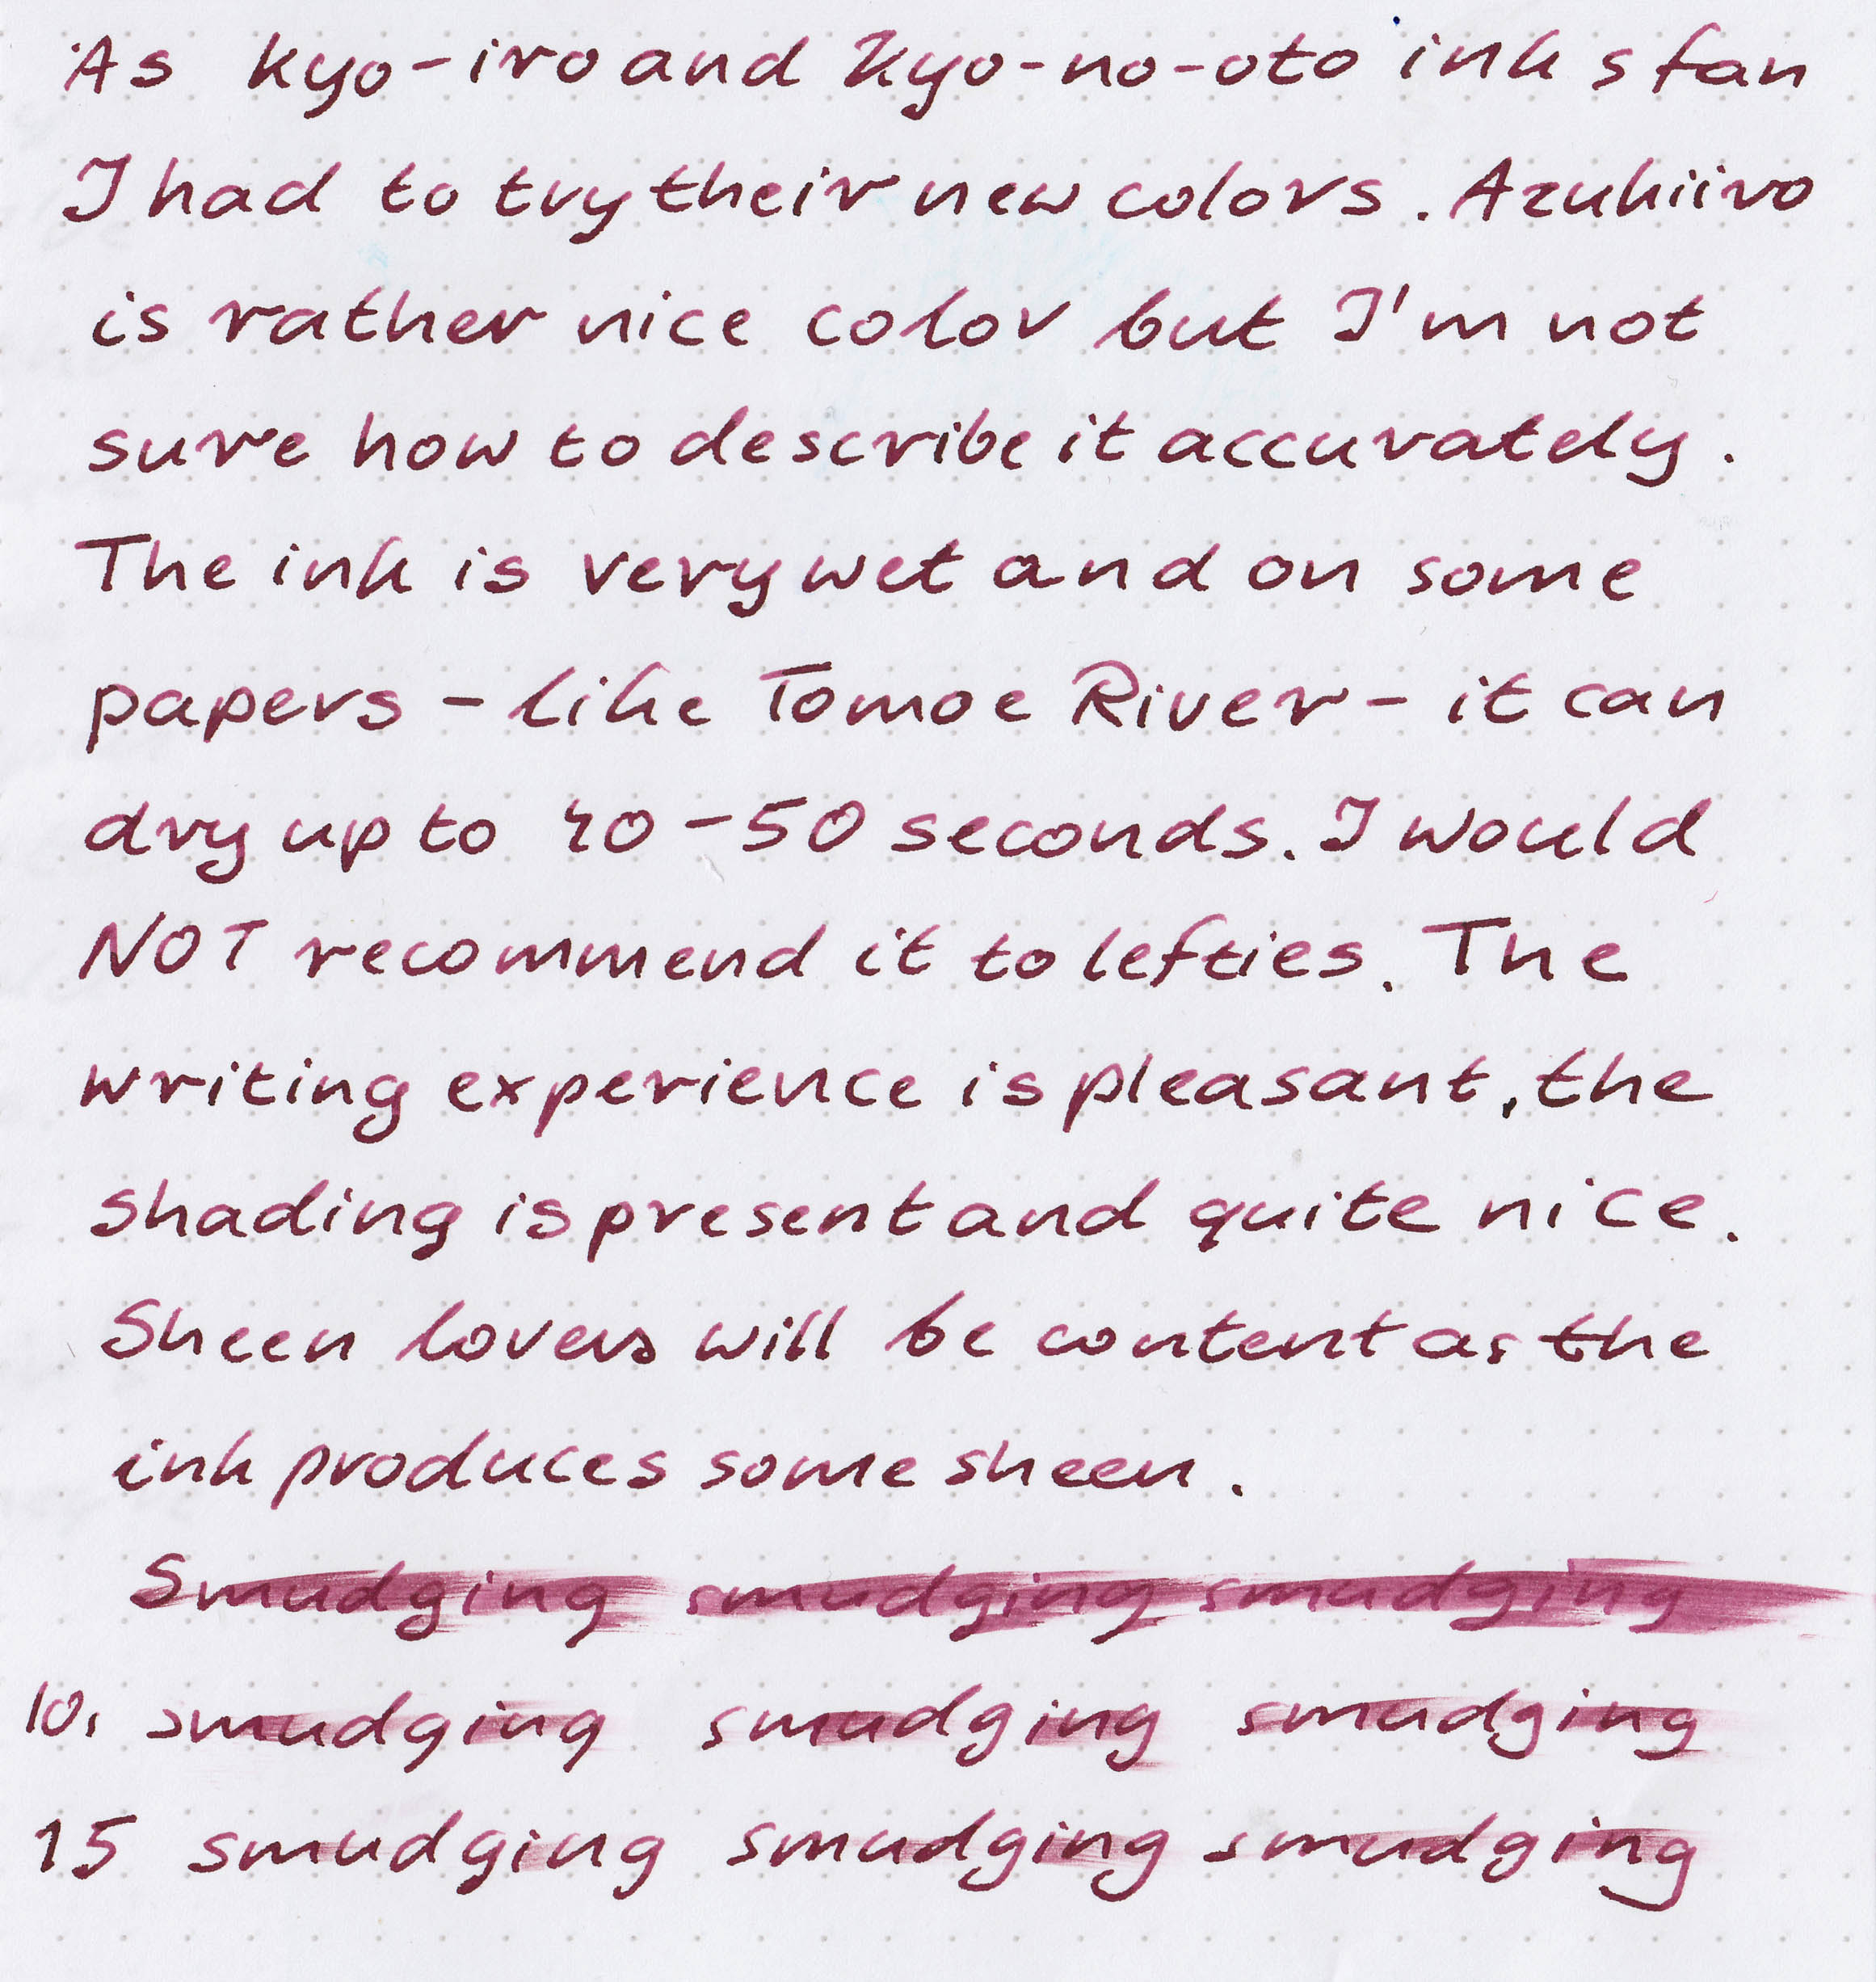 As kyo-iro and Kyo-no-oto inks fan
I had to try their new colors. Azukiiro
is rather nice color but I'm not
sure how to describe it accurately.
The ink is very wet and on some
papers - like Tomoe River - it can
dry up to 40-50 seconds. I would
NOT recommend it to lefties. The
writing experience is pleasant, the
shading is present and quite nice.
Sheen lovers will be content as the
ink produces some sheen.
Smudging smudging smudging
10, smudging smudging smudging
15 smudging smudging smudging